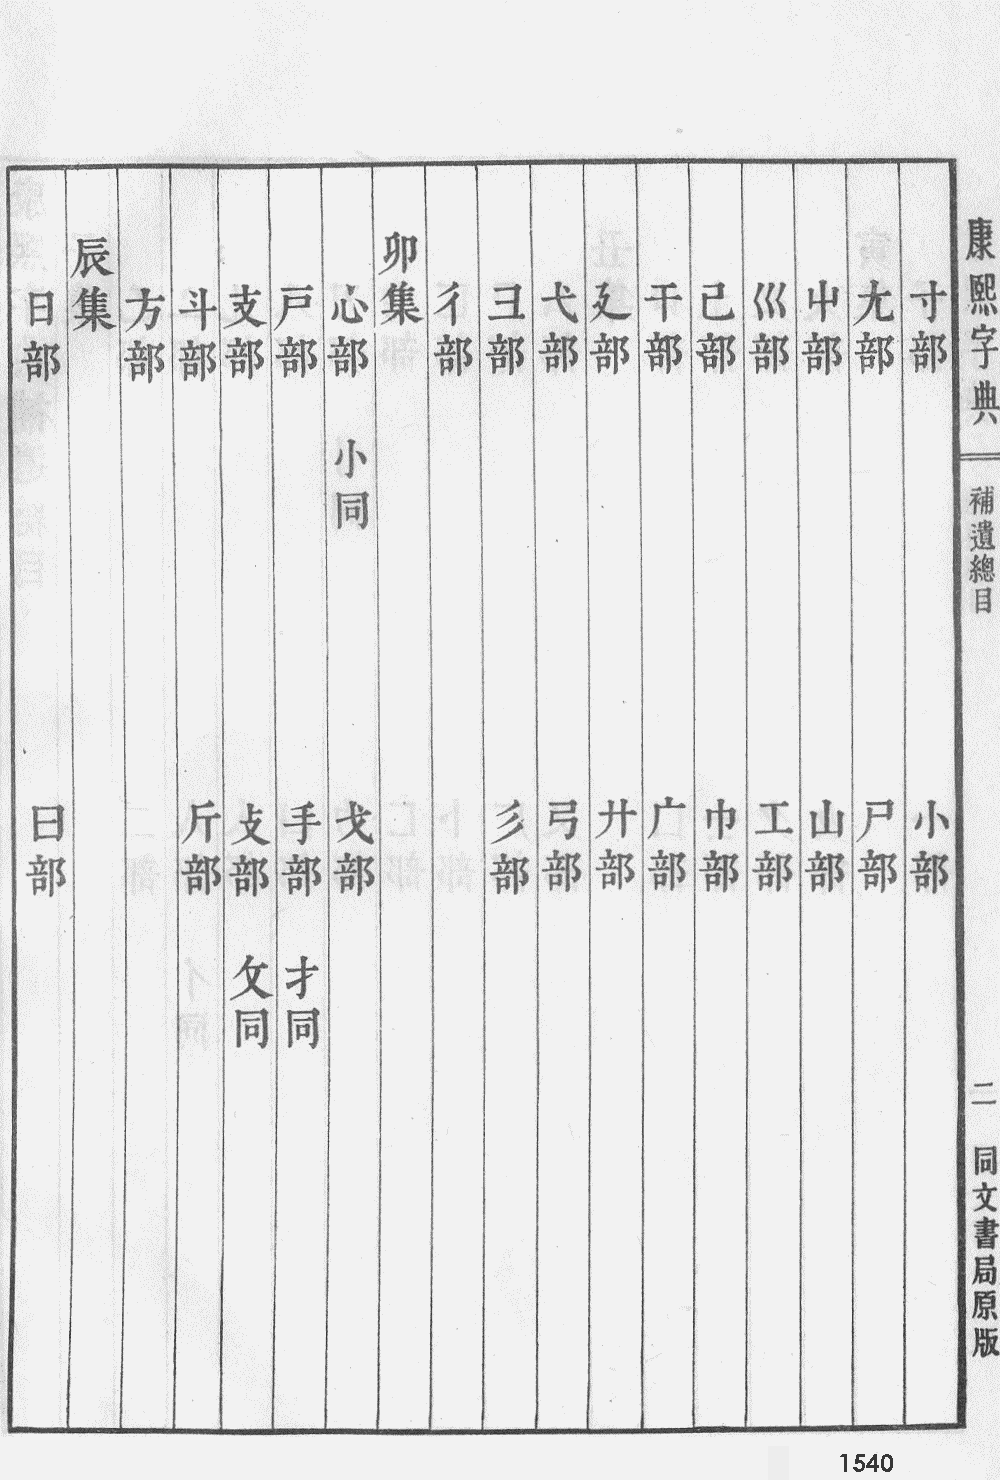 康熙字典 補遺總目 二 同文書局原版
寸部 小部
尢部 尸部
屮部 山部
巛部 工部
己部 巾部
干部 广部
廴部 廾部
弋部 弓部
彐部 彡部
彳部
卯集
心部 小同 戈部
戸部 手部 才同
支部 攴部 攵同
斗部 斤部
方部
辰集
日部 曰部
1540